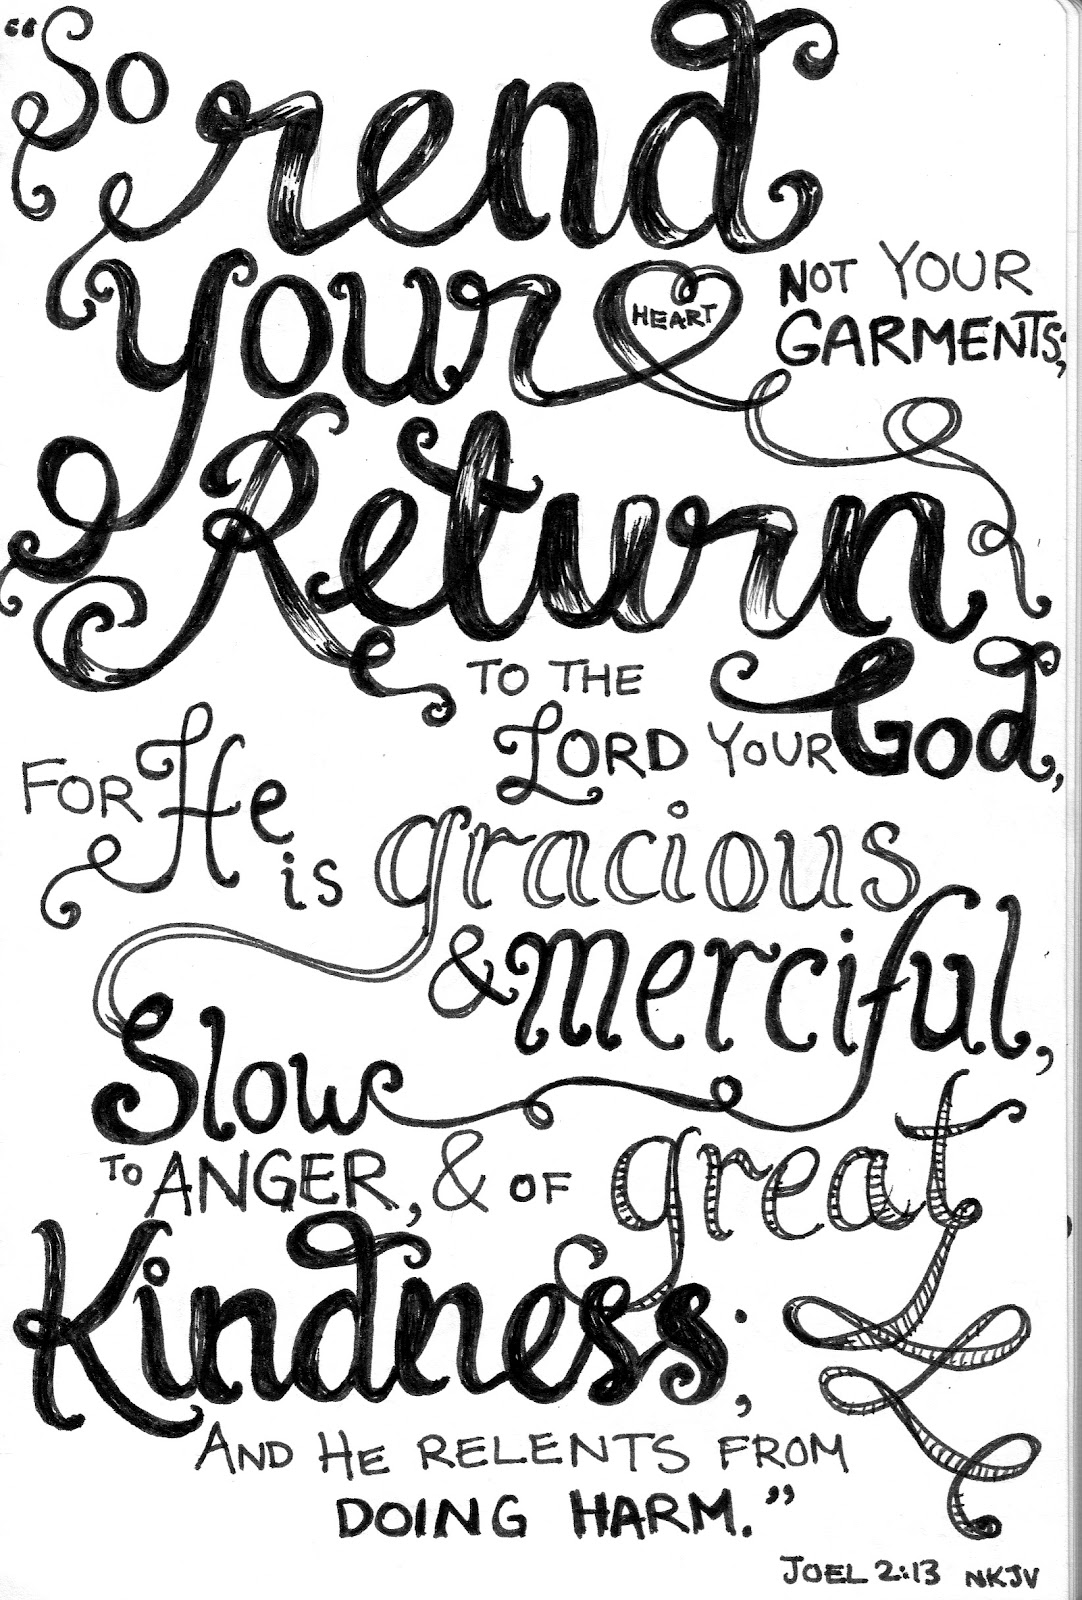 "So rend
your HEART NOT YOUR
GARMENTS;
Return
TO THE
LORD YOUR God,
FOR He
is gracious
& merciful,
Slow
TO ANGER, & OF great
Kindness;
AND HE RELENTS FROM
DOING HARM."
JOEL 2:13 NKJV